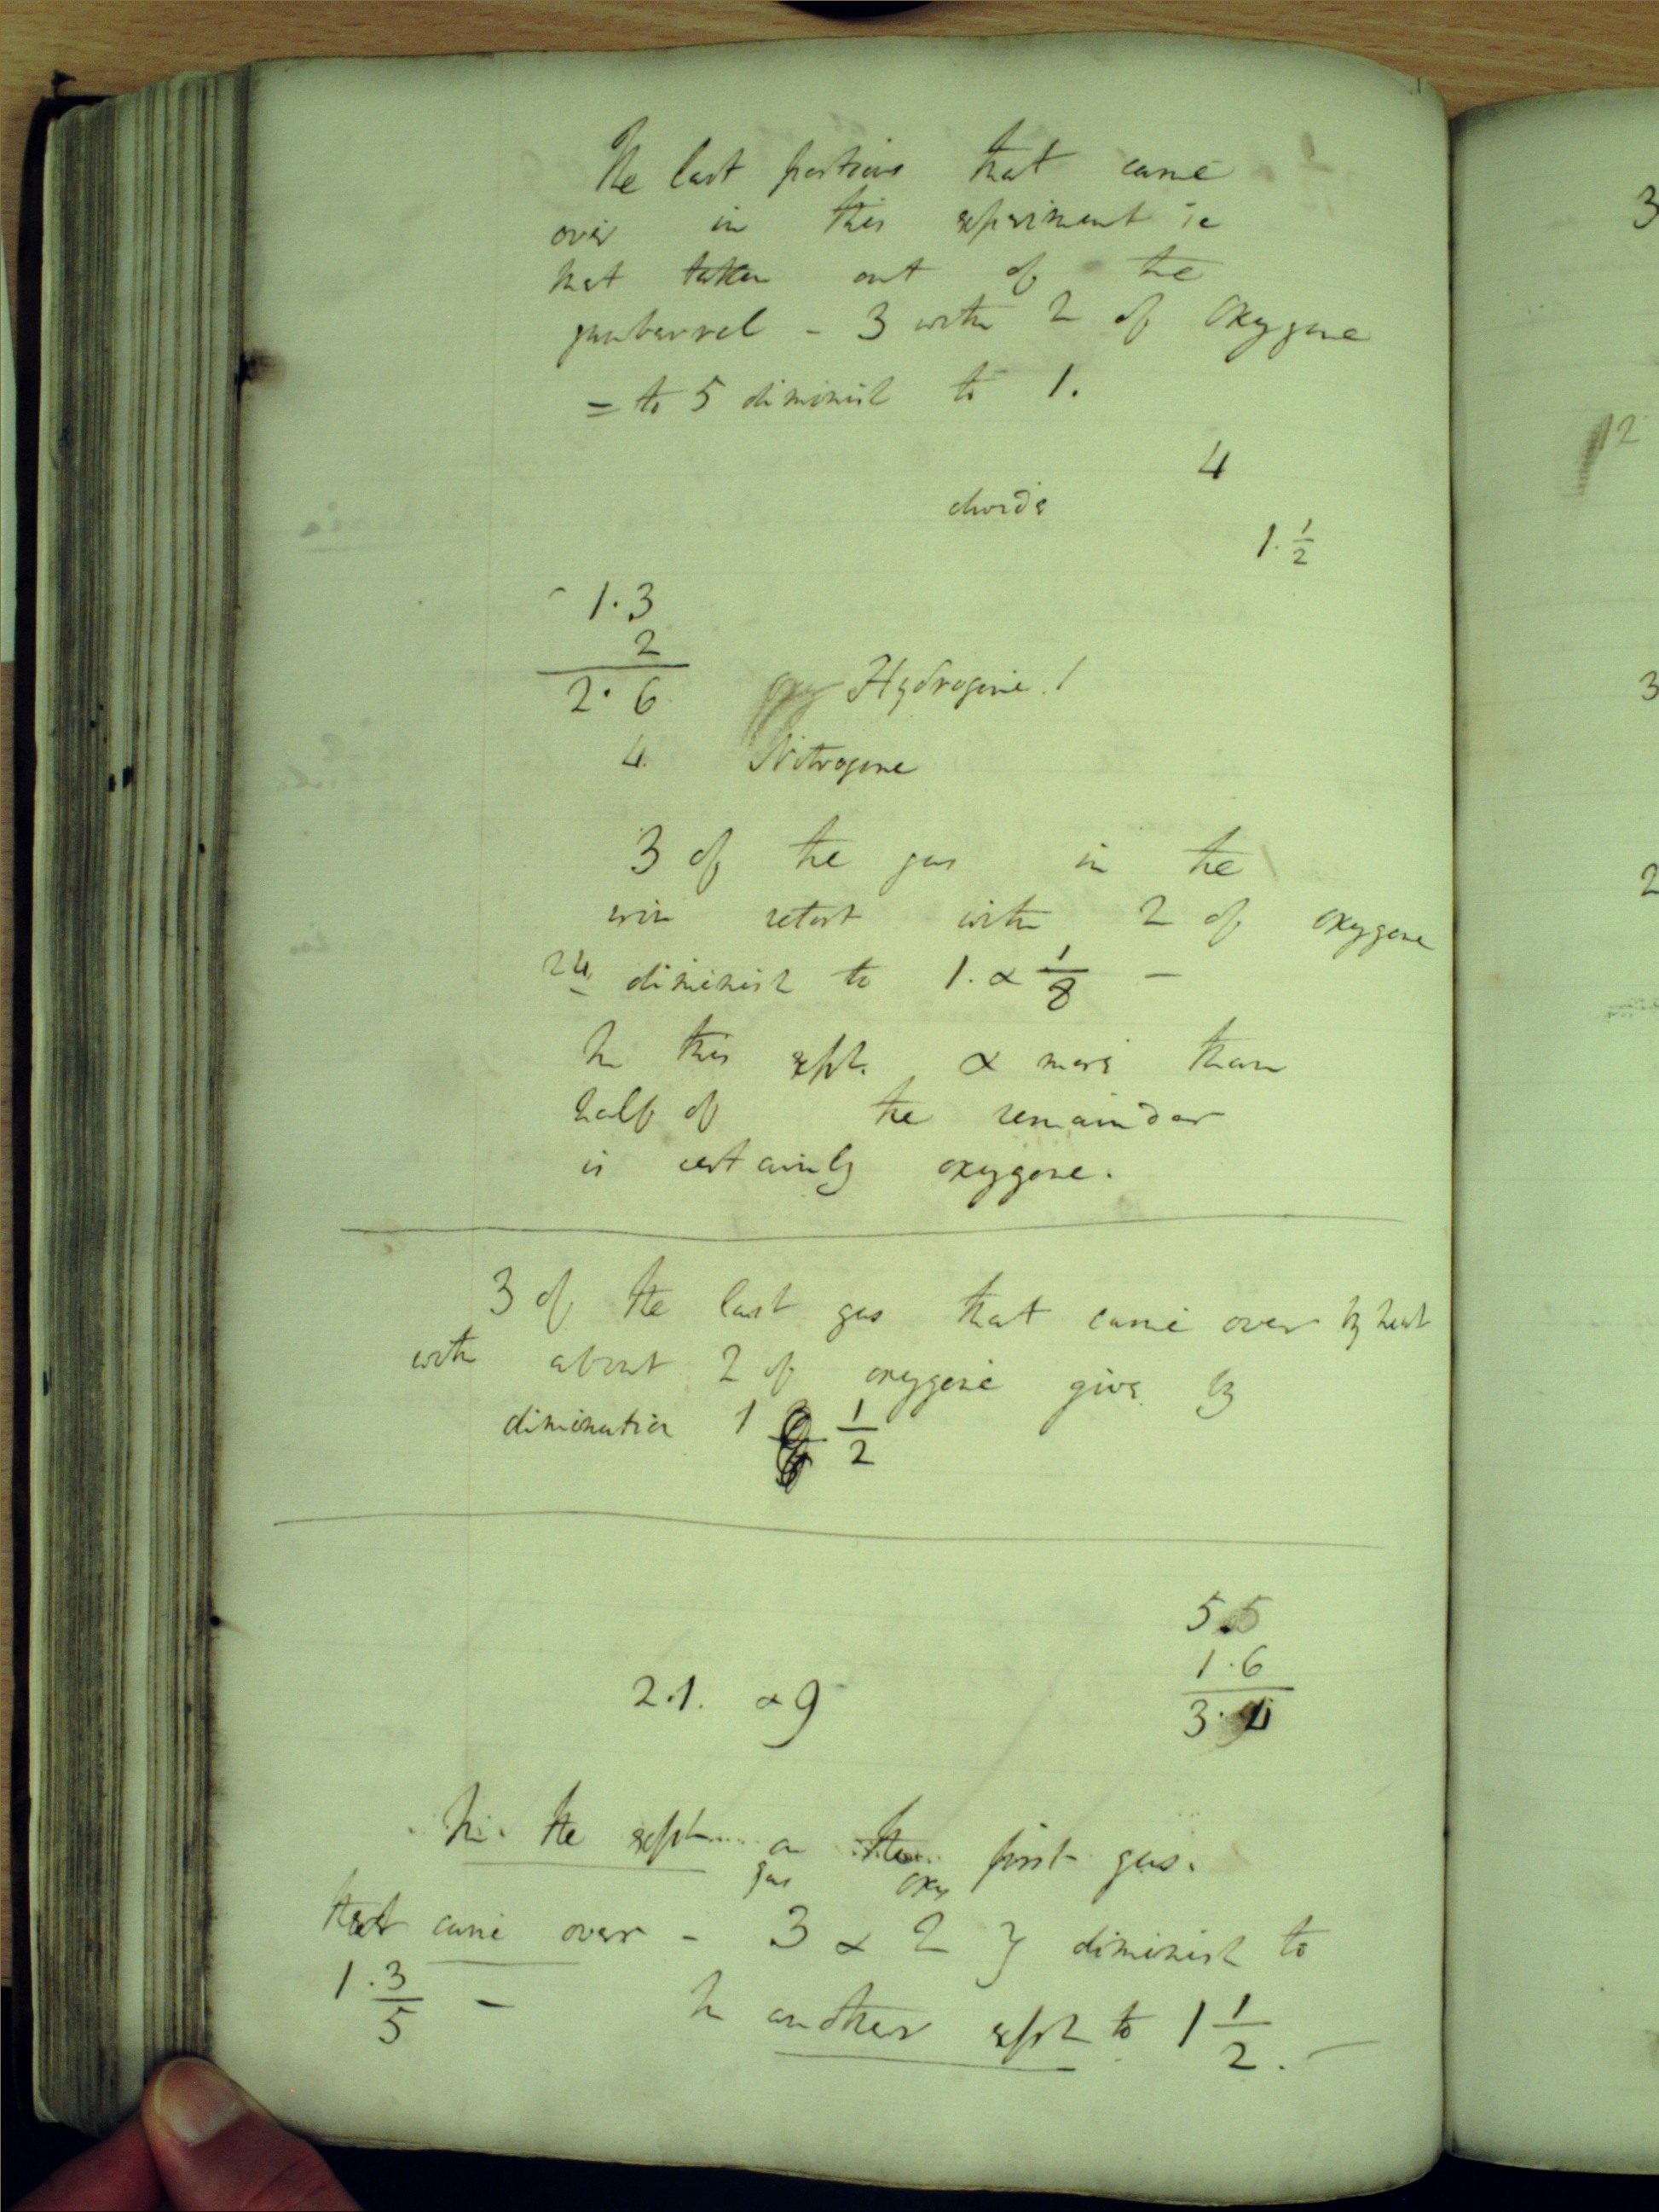 The last portions that came
over in this experiment ie
that taken out of the
gunbarrel - 3 with 2 of Oxygene
= to 5 diminish to 1.
4
divide
1. 1/2
1.3
2
2.6 Hydrogene. 1
4. Nitrogene
3 of the gas in the
iron retort with 2 of oxygene
24 diminish to 1. & 1/8 -
In this expt. & more than
half of the remainder
is certainly oxygene.
3 of the last gas that came over by heat
with about 2 of oxygene give by
diminution 1 1/2
5.5
1.6
2.1. & 9
3.
In the expt on the first gas.
gas oxy
that came over - 3 & 2 } diminish to
1. 3/5 - In another expt to 1 1/2. -
3
12
3
2